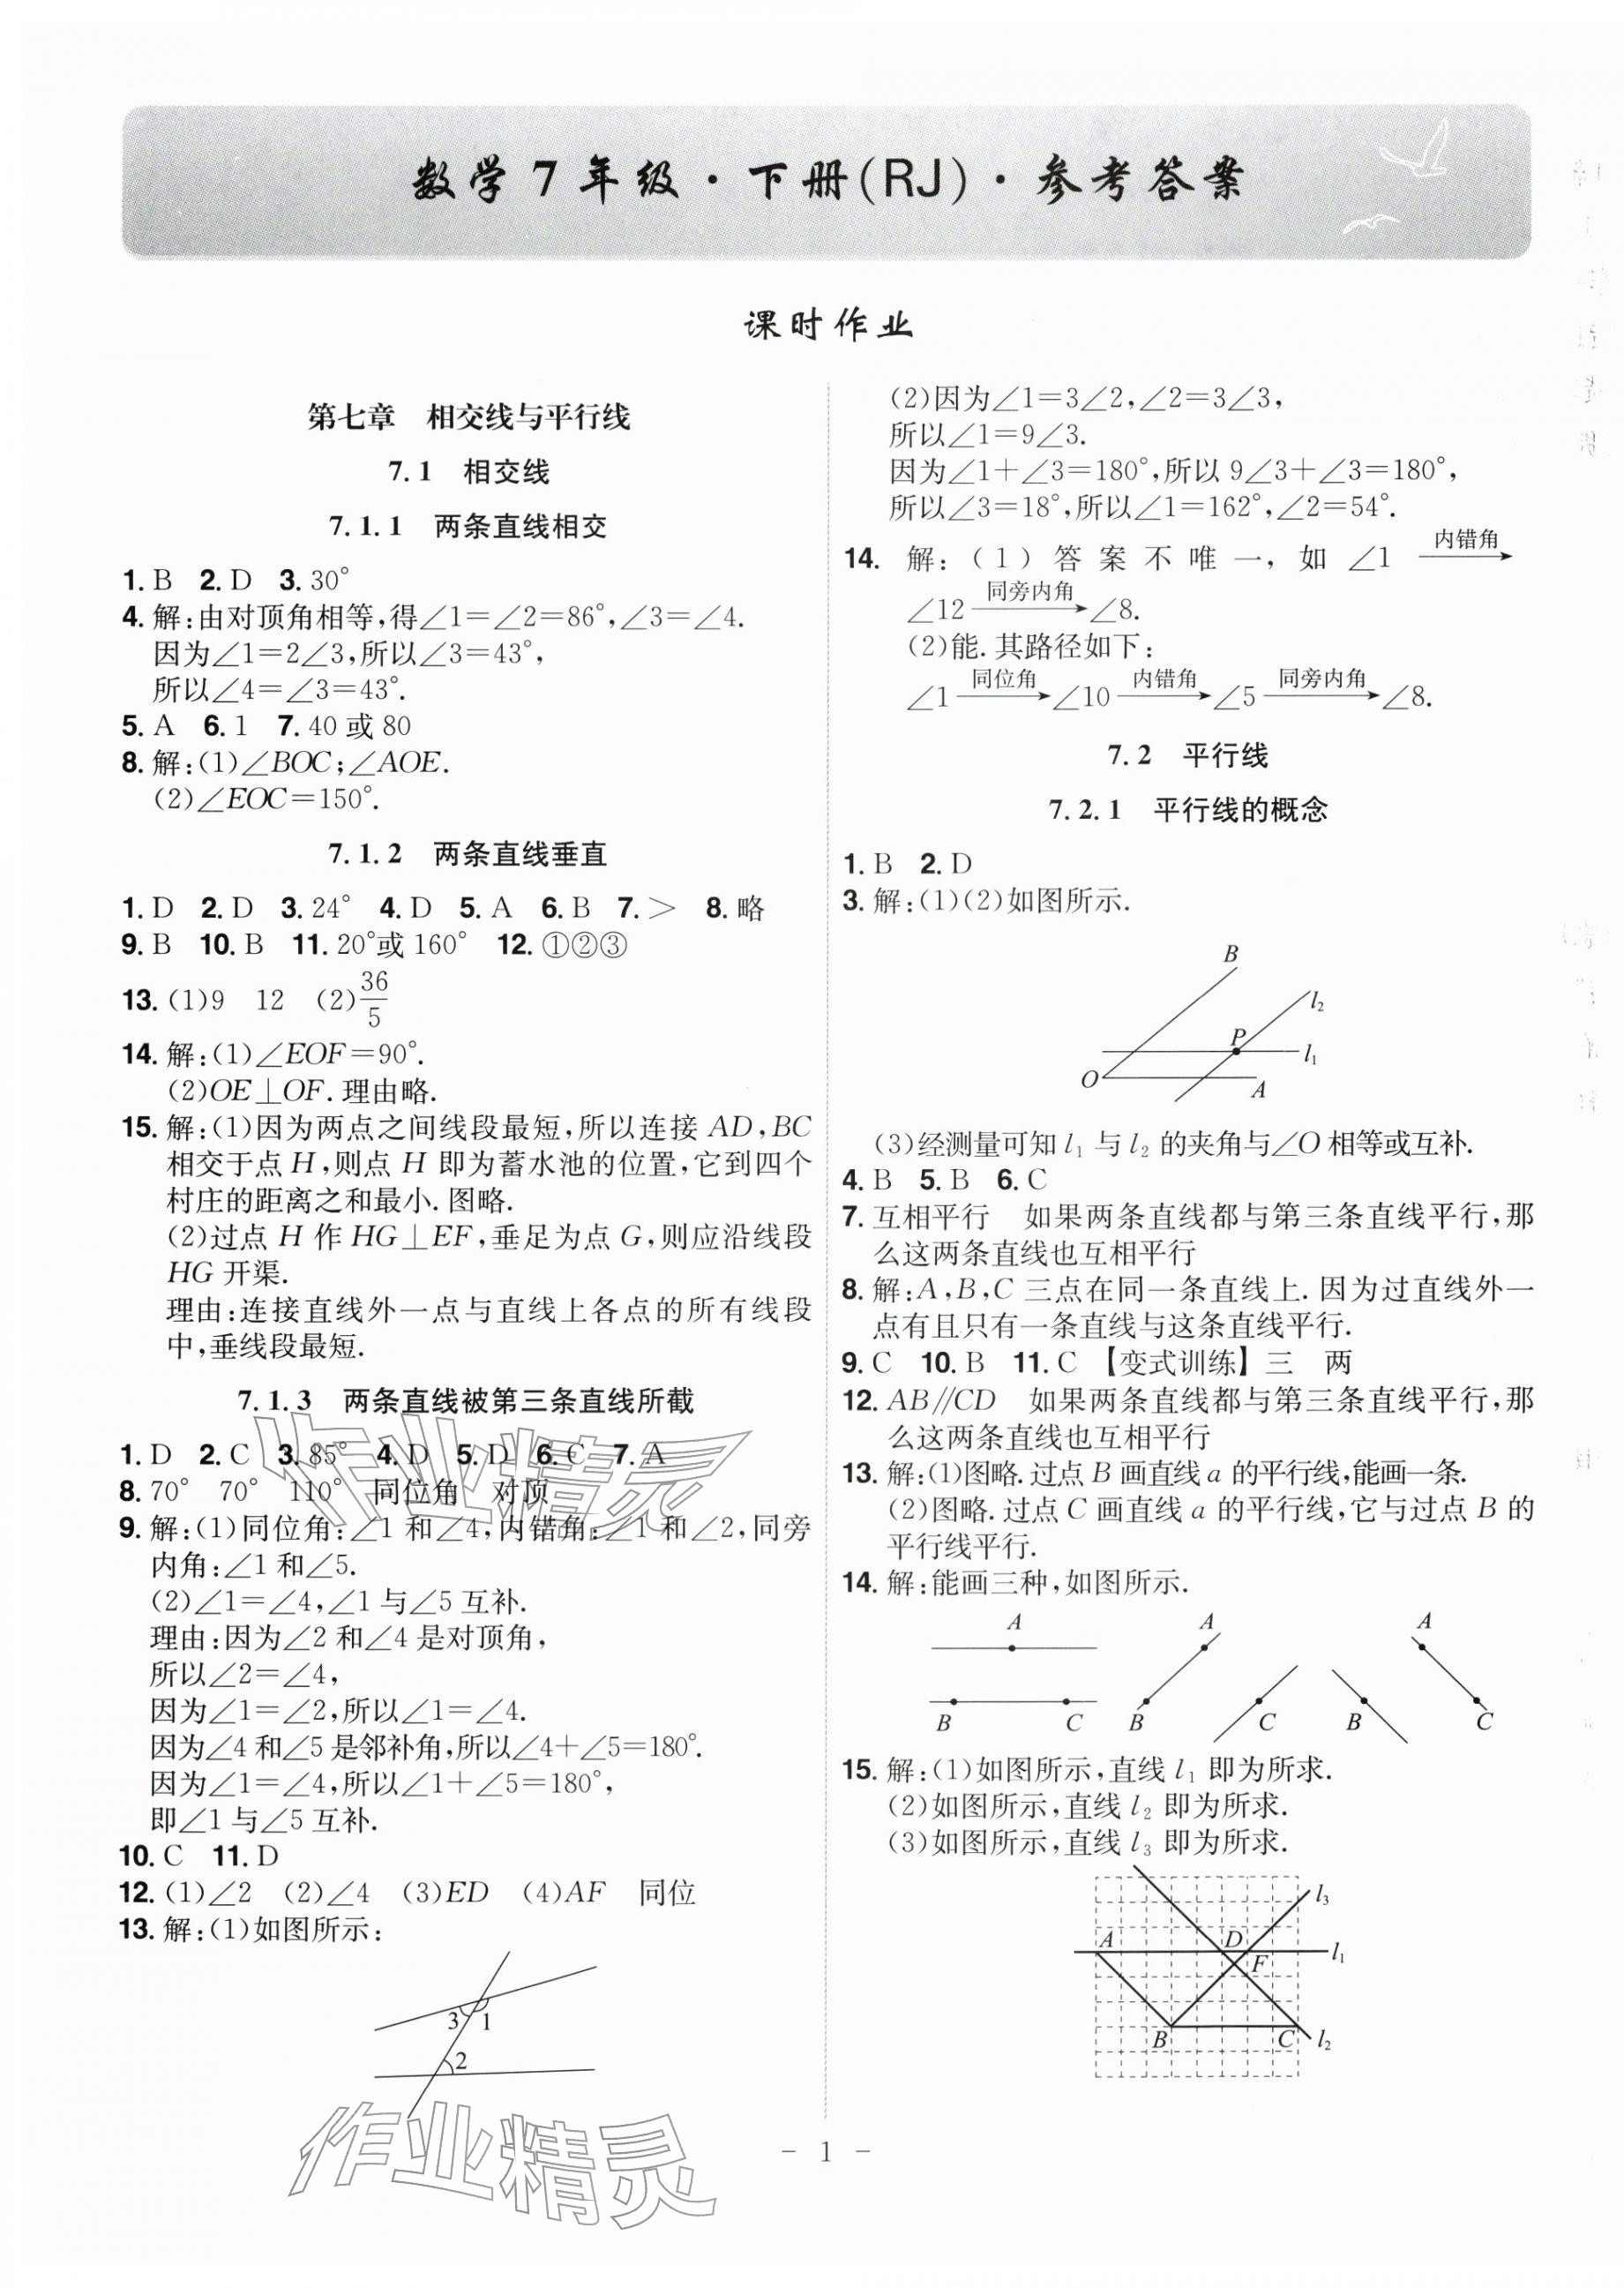 数学7年级·下册(RJ)·参考答案
课时作业
第七章 相交线与平行线
7.1 相交线
7.1.1 两条直线相交
1. B 2. D 3. 30°
4. 解:由对顶角相等,得∠1=∠2=86°,∠3=∠4.
因为∠1=2∠3,所以∠3=43°,
所以∠4=∠3=43°.
5. A 6. 1 7. 40 或 80
8. 解:(1)∠BOC;∠AOE.
(2)∠EOC=150°.
7.1.2 两条直线垂直
1. D 2. D 3. 24° 4. D 5. A 6. B 7. > 8. 略
9. B 10. B 11. 20°或 160° 12. ①②③
13. (1)9 12 (2)36/5
14. 解:(1)∠EOF=90°.
(2)OE⊥OF. 理由略.
15. 解:(1)因为两点之间线段最短,所以连接 AD,BC
相交于点 H,则点 H 即为蓄水池的位置,它到四个
村庄的距离之和最小. 图略.
(2)过点 H 作 HG⊥EF,垂足为点 G,则应沿线段
HG 开渠.
理由:连接直线外一点与直线上各点的所有线段
中,垂线段最短.
7.1.3 两条直线被第三条直线所截
1. D 2. C 3. 85° 4. D 5. D 6. C 7. A
8. 70° 70° 110° 同位角 对顶
9. 解:(1)同位角:∠1 和∠4,内错角:∠1 和∠2,同旁
内角:∠1 和∠5.
(2)∠1=∠4,∠1 与∠5 互补.
理由:因为∠2 和∠4 是对顶角,
所以∠2=∠4,
因为∠1=∠2,所以∠1=∠4.
因为∠4 和∠5 是邻补角,所以∠4+∠5=180°.
因为∠1=∠4,所以∠1+∠5=180°,
即∠1 与∠5 互补.
10. C 11. D
12. (1)∠2 (2)∠4 (3)ED (4)AF 同位
13. 解:(1)如图所示:
3 1
2
作业精灵
作业精灵
(2)因为∠1=3∠2,∠2=3∠3,
所以∠1=9∠3.
因为∠1+∠3=180°,所以 9∠3+∠3=180°,
所以∠3=18°,所以∠1=162°,∠2=54°.
14. 解:(1)答案不唯一,如 ∠1 内错角→
∠12 同旁内角→ ∠8.
(2)能. 其路径如下:
∠1 同位角→ ∠10 内错角→ ∠5 同旁内角→ ∠8.
7.2 平行线
7.2.1 平行线的概念
1. B 2. D
3. 解:(1)(2)如图所示.
B
l2
P
l1
O
A
(3)经测量可知 l1 与 l2 的夹角与∠O 相等或互补.
4. B 5. B 6. C
7. 互相平行 如果两条直线都与第三条直线平行,那
么这两条直线也互相平行
8. 解:A,B,C 三点在同一条直线上. 因为过直线外一
点有且只有一条直线与这条直线平行.
9. C 10. B 11. C 【变式训练】三 两
12. AB∥CD 如果两条直线都与第三条直线平行,那
么这两条直线也互相平行
13. 解:(1)图略. 过点 B 画直线 a 的平行线,能画一条.
(2)图略. 过点 C 画直线 a 的平行线,它与过点 B 的
平行线平行.
14. 解:能画三种,如图所示.
A A A
B C B C B C
15. 解:(1)如图所示,直线 l1 即为所求.
(2)如图所示,直线 l2 即为所求.
(3)如图所示,直线 l3 即为所求.
l3
A D l1
F
B C l2
– 1 –